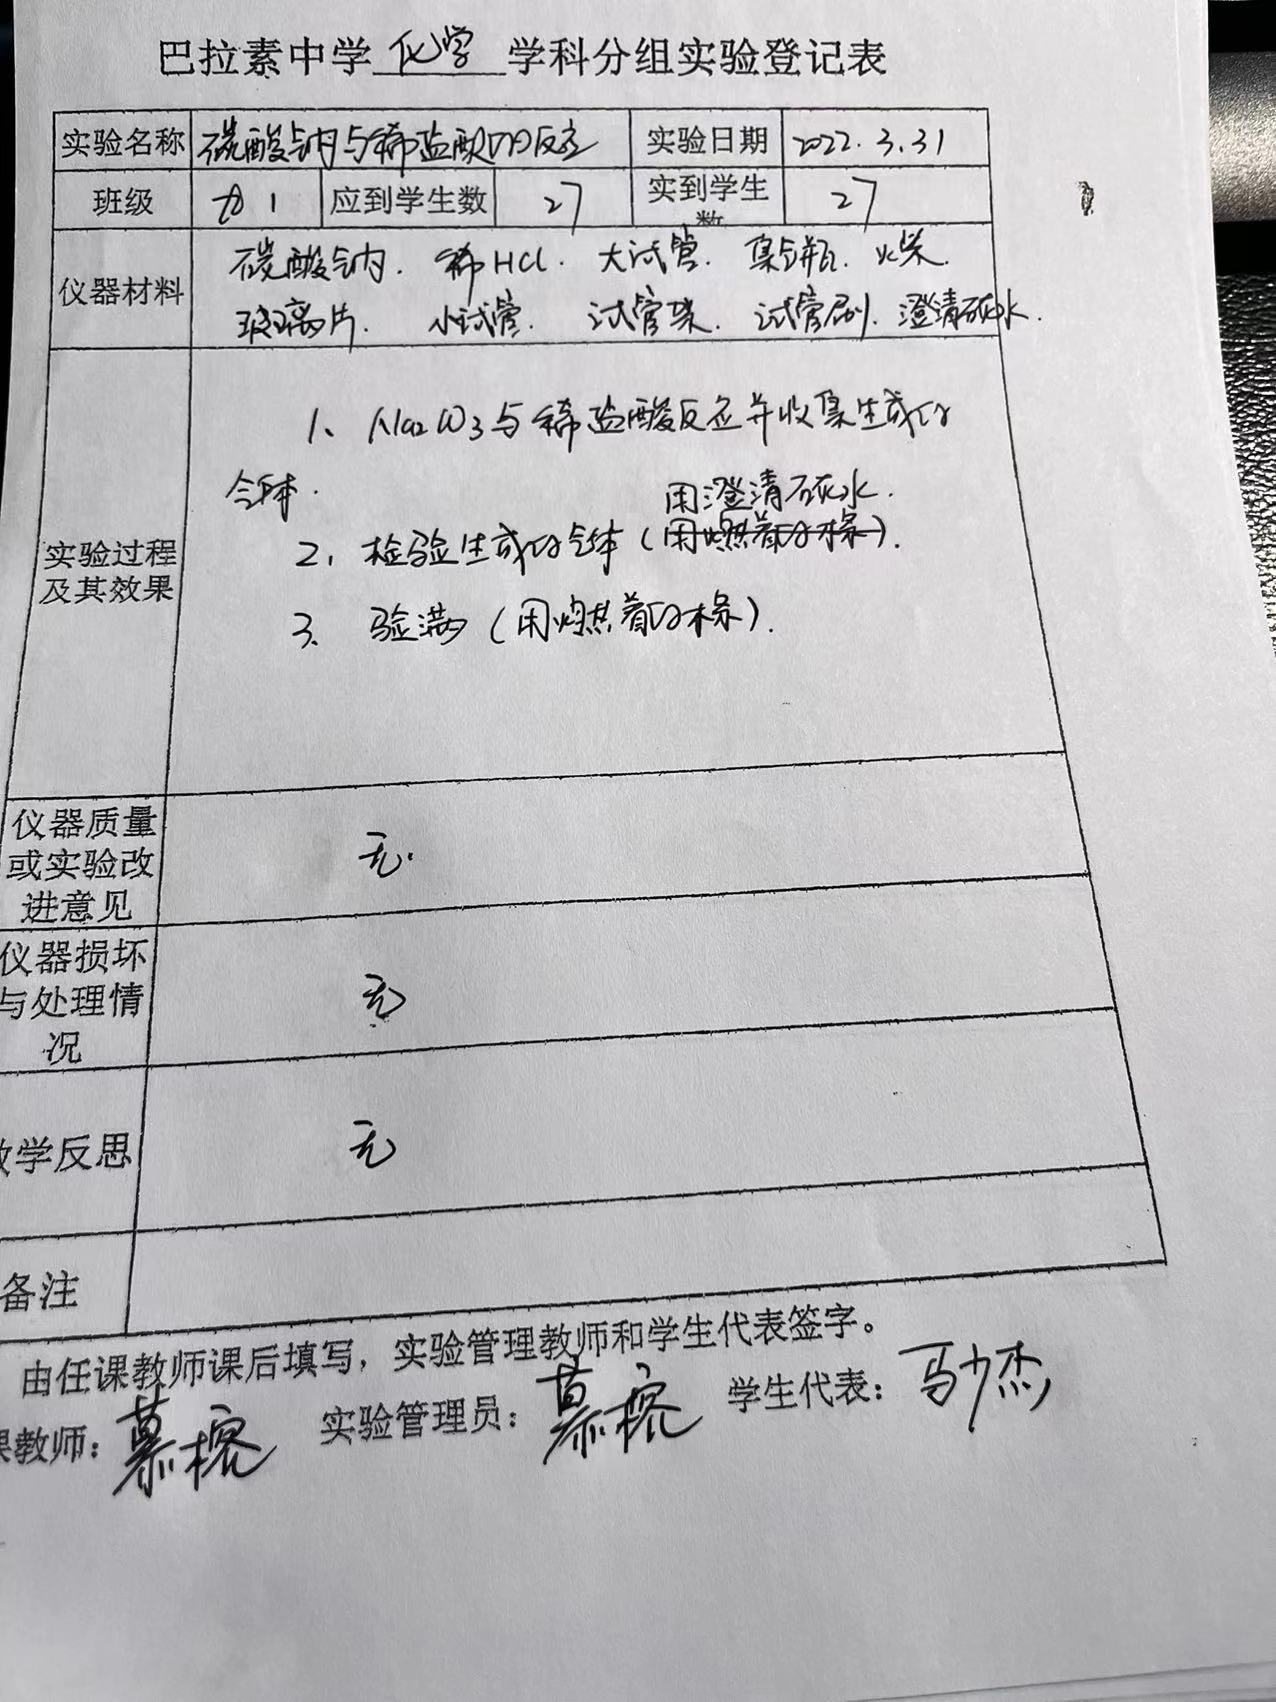 巴拉素中学 化学 学科分组实验登记表
实验名称 碳酸钠与稀盐酸的反应 实验日期 2022.3.31
班级 九1 应到学生数 27 实到学生数 27
仪器材料 碳酸钠. 稀HCl. 大试管. 集气瓶. 火柴.
玻璃片. 小试管. 试管架. 试管刷. 澄清石灰水.
1、Na2CO3与稀盐酸反应并收集生成的
气体.
用澄清石灰水.
2, 检验生成的气体(用燃着的木条).
实验过程
及其效果
3、验满(用燃着的木条).
仪器质量
或实验改
进意见
无.
仪器损坏
与处理情
况
无
教学反思 无
备注
由任课教师课后填写，实验管理教师和学生代表签字。
课教师: 慕榕 实验管理员: 慕榕 学生代表: 马少杰